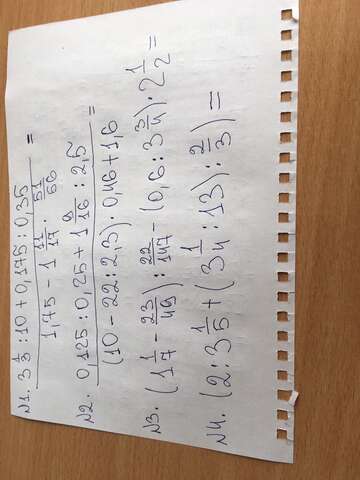 N1. 3 1/3 : 10 + 0,175 : 0,35 =
1,75 - 1 11/17 · 51/56
N2. 0,125 : 0,25 + 1 9/16 : 2,5 =
(10 - 22 : 2,3) · 0,46 + 1,6
N3. (1 1/7 - 23/49) : 22/147 - (0,6 : 3 3/4) · 2 1/2 =
N4. (2 : 3 1/5 + (3 1/4 : 13) : 2/3) =